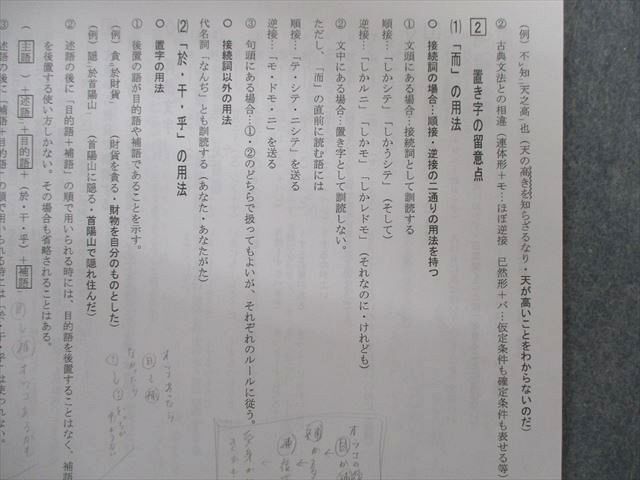 （例）不知天之高也（天の高きを知らざるなり・天が高いことをわからないのだ）
② 古典文法との相違（連体形＋モ…ほぼ逆接　已然形＋バ…仮定条件も確定条件も表せる等）
2　置き字の留意点
(1)「而」の用法
○ 接続詞の場合…順接・逆接の二通りの用法を持つ
① 文頭にある場合…接続詞として訓読する
順接…「しかシテ」「しかうシテ」（そして）
逆接…「しかルニ」「しかモ」「しかレドモ」（それなのに・けれども）
② 文中にある場合…置き字として訓読しない。
ただし、「而」の直前に読む語には
順接…「テ・シテ・ニシテ」を送る
逆接…「モ・ドモ・ニ」を送る
③ 句頭にある場合…①・②のどちらで扱ってもよいが、それぞれのルールに従う。
○ 接続詞以外の用法
代名詞「なんぢ」とも訓読する（あなた・あなたがた）
(2)「於・于・乎」の用法
○ 置字の用法
① 後置の語が目的語や補語であることを示す。
（例）貪於財貨　（財貨を貪る・財物を自分のものとした）
（例）隠於首陽山　（首陽山に隠る・首陽山で隠れ住んだ）
② 述語の後に「目的語＋補語」の順で用いられる時には、目的語を後置することはなく、補語
を後置する使い方しかない。その場合も省略されることはある。
（主語）＋述語＋目的語＋（於・于・乎）＋補語
③ 述語の後に「補語＋目的語」の順で用いられる時には「於・于・乎」は使われない。